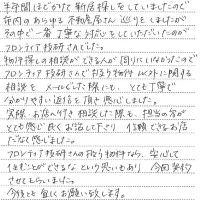 半年間ほどかけて新居探しをしていましたので
市内のあらゆる不動産屋さん巡りをしましたが
その中で一番丁寧な対応をしていただいたのが
フロンティア技研さんでした。
物件探しの相談ができる人が周りにいなかったので
フロンティア技研さんで扱う物件以外に関する
相談を メールでした際にも、とても丁寧で
分かりやすい返信を頂き感心しました。
実際、お店へ行き相談した際も、担当の方が
とても感じ良くお話して下さり 信頼できるお店
だなと感じました。
フロンティア技研さんの扱う物件なら、安心して
住むことができるなという思いもあり 今回契約
させてもらいました。
今後とも宜しくお願い致します。